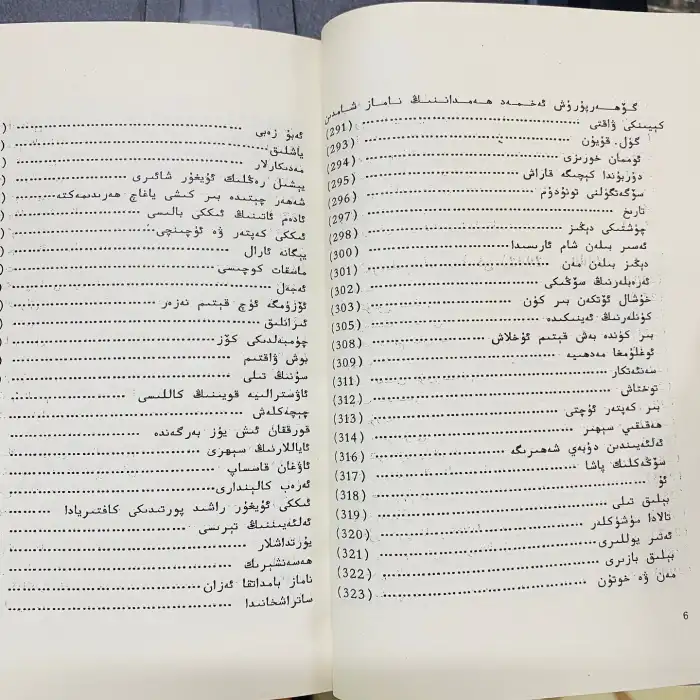 گۆھەرپۇرۇش ئەخمەد ھەمداننىڭ ناماز شامدىن
كېيىنكى ۋاقتى (291)
گۈل. قۇيۇن (293)
ئوسمان خورىزى (294)
دۇربۇندا كېچىگە قاراش (295)
سۆگەتگۈلنى تونۇدۇم (296)
تارىخ (297)
چۈشتىكى دېڭىز (298)
ئەسىر بىلەن شام ئارىسىدا (300)
دېڭىز بىلەن مەن (301)
ئەرەبلەرنىڭ سۆڭىكى (302)
خۇشال ئۆتكەن بىر كۈن (303)
كۈنلەرنىڭ ئەينىكىدە (305)
بىر كۈندە بەش قېتىم ئۇخلاش (308)
ئوغلۇمغا مەدھىيە (309)
سەنئەتكار (311)
توختاش (312)
بىر كەپتەر ئۇچتى (313)
ھەقىقىي سېھىر (314)
ئەلئەيىندىن دۇبەي شەھىرىگە (316)
سۆڭەكلىك پاشا (317)
ئۇ (318)
بېلىق تىلى (319)
تالادا مۈشۈكلەر (320)
ئەتىر يوللىرى (321)
بېلىق بازىرى (322)
مەن ۋە خوتۇن (323)
6
ئەبۇ زەبى
ياشلىق
مەدىكارلار
يېشىل رەڭلىك ئۇيغۇر شائىرى
شەھەر چېتىدە بىر كىشى ياغاچ ھەرىدىمەكتە
ئادەم ئاتىنىڭ ئىككى بالىسى
ئىككى كەپتەر ۋە ئۈچىنچى
يېگانە ئارال
ماشقات كوچىسى
ئەجەل
ئۆزۈمگە ئۈچ قېتىم نەزەر
ئىرانلىق
چۈمبەلدىكى كۆز
بوش ۋاقتىم
سۇنىڭ تىلى
ئاۋسترالىيە قويىنىڭ كاللىسى
چېچەكلەش
قورققان ئىش يۈز بەرگەندە
ئاياللارنىڭ سېھرى
ئاۋغان قاسساپ
ئەرەب كالېندارى
ئىككى ئۇيغۇر راشىد پورتىدىكى كافتېرىيادا
ئەلئەيىننىڭ تېرىسى
يۇرتداشلار
ھەسەنشېرىك
ناماز بامداتقا ئەزان
ساتىراشخانىدا